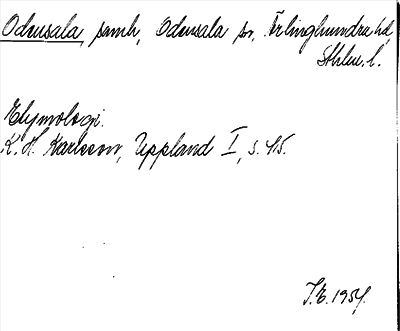 Odensala samh, Odensala sn, Ärlinghundra hd,
Sthlm l.
Etymologi.
K. H. Karlsson, Uppland I, s. 45.
I.E. 1954.